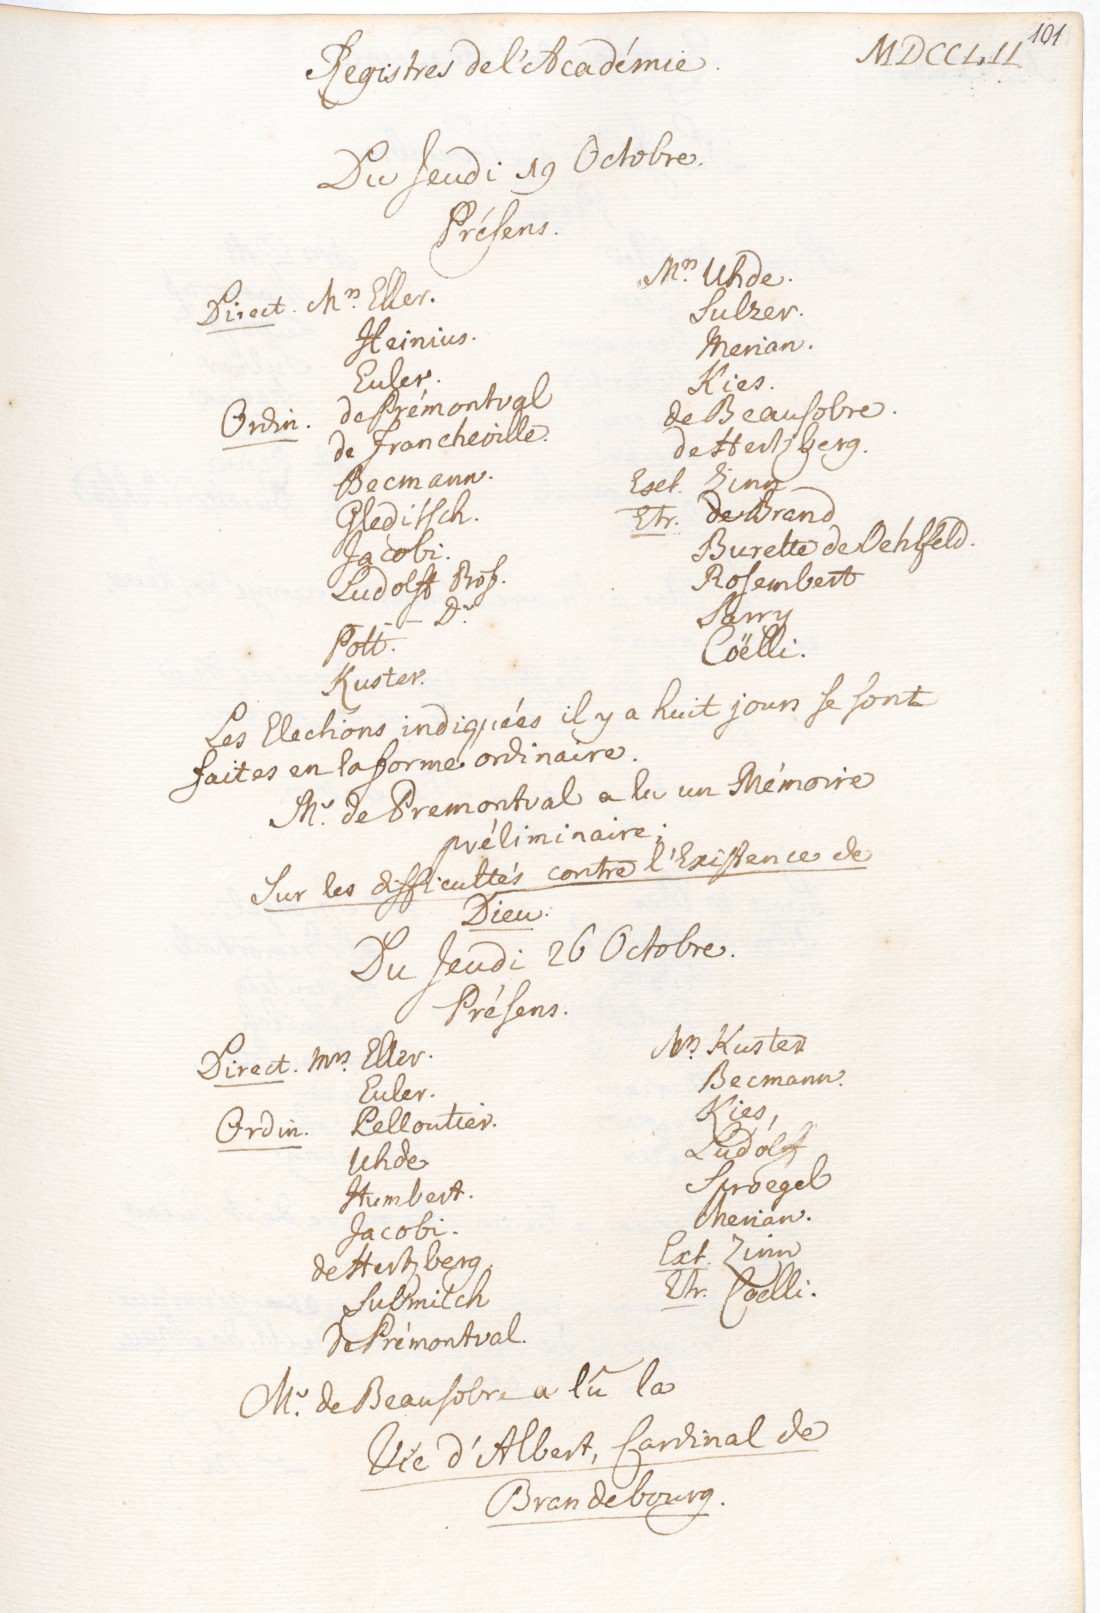 101
Registres de l'Académie.
MDCCLII
Du Jeudi 19 Octobre.
Présens.
Direct. Mrs Eller.
Heinius.
Euler.
Ordin. de Prémontval
de Francheville.
Becmann.
Gleditsch.
Jacobi.
Ludolff Prof.
— — Dr
Pott.
Kuster.
Mrs Uhde.
Sulzer.
Merian.
Kies.
de Beausobre.
de Hertzberg.
Ext. Zinn
Etr. de Brand
Burette de Oehlfeld.
Rosembert
Parry
Coëlli.
Les Elections indiquées il y a huit jours se sont
faites en la forme ordinaire.
Mr. de Premontval a lu un Mémoire
préliminaire;
Sur les difficultés contre l'Existence de
Dieu.
Du Jeudi 26 Octobre.
Présens.
Direct. Mrs Eller.
Euler.
Ordin. Pelloutier.
Uhde
Humbert.
Jacobi.
de Hertzberg.
Susmilch
de Prémontval.
Mrs Kuster
Becmann.
Kies,
Ludolff
Sproegel
Merian.
Ext. Zinn
Etr. Coelli.
Mr. de Beausobre a lû la
Vie d'Albert, Cardinal de
Brandebourg.